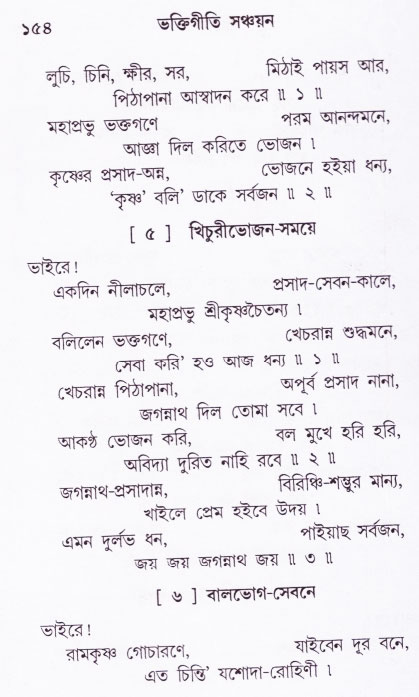 ১৫৪ ভক্তিগীতি সঞ্চয়ন
লুচি, চিনি, ক্ষীর, সর, মিঠাই পায়স আর,
পিঠাপানা আস্বাদন করে ॥ ১ ॥
মহাপ্রভু ভক্তগণে পরম আনন্দমনে,
আজ্ঞা দিল করিতে ভোজন ।
কৃষ্ণের প্রসাদ-অন্ন, ভোজনে হইয়া ধন্য,
‘কৃষ্ণ’ বলি’ ডাকে সর্বজন ॥ ২ ॥
[ ৫ ] খিচুরীভোজন-সময়ে
ভাইরে!
একদিন নীলাচলে, প্রসাদ-সেবন-কালে,
মহাপ্রভু শ্রীকৃষ্ণচৈতন্য ।
বলিলেন ভক্তগণে, খেচরান্ন শুদ্ধমনে,
সেবা করি’ হও আজ ধন্য ॥ ১ ॥
খেচরান্ন পিঠাপানা, অপূর্ব প্রসাদ নানা,
জগন্নাথ দিল তোমা সবে ।
আকণ্ঠ ভোজন করি, বল মুখে হরি হরি,
অবিদ্যা দুরিত নাহি রবে ॥ ২ ॥
জগন্নাথ-প্রসাদান্ন, বিরিঞ্চি-শম্ভুর মান্য,
খাইলে প্রেম হইবে উদয় ।
এমন দুর্লভ ধন, পাইয়াছ সর্বজন,
জয় জয় জগন্নাথ জয় ॥ ৩ ॥
[ ৬ ] বালভোগ-সেবনে
ভাইরে!
রামকৃষ্ণ গোচারণে, যাইবেন দূর বনে,
এত চিন্তি’ যশোদা-রোহিণী ।